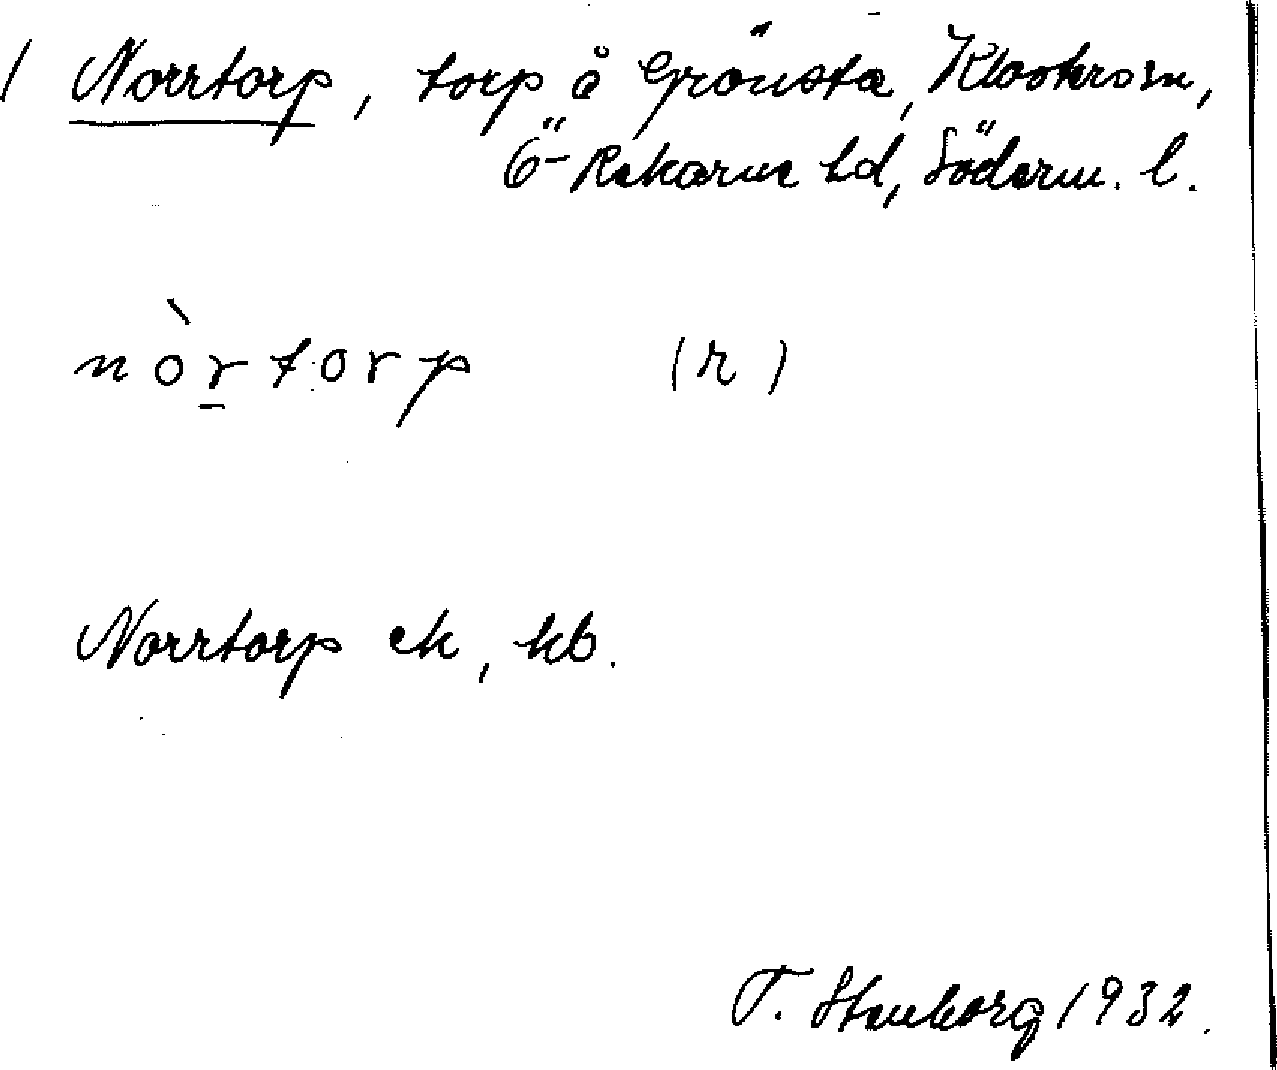 / Norrtorp, torp å Grönsta, Klosters sn,
Ö-Rekarne hd, Söderm. l.
nòr̠torp (r)
Norrtorp ek, kb.
T. Stenborg 1932.